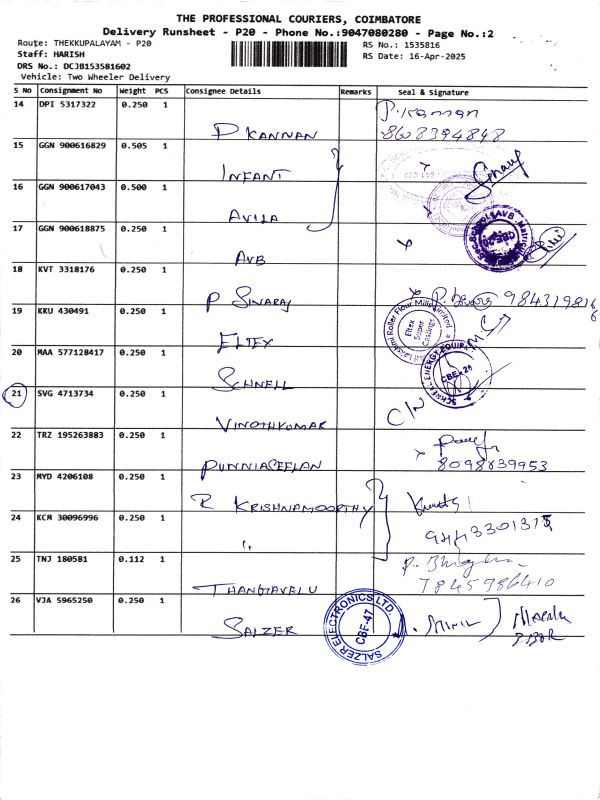 THE PROFESSIONAL COURIERS, COIMBATORE
Delivery Runsheet - P20 - Phone No.:9047080280 - Page No.:2
Route: THEKKUPALAYAM - P20
RS No.: 1535816
Staff: HARISH
RS Date: 16-Apr-2025
DRS No.: DCJB153581602
Vehicle: Two Wheeler Delivery
S No Consignment No Weight PCS Consignee Details Remarks Seal & Signature
14 DPI 5317322 0.250 1
D KANNAN P. Kannan
8608394848
15 GGN 900616829 0.505 1
INFANT
16 GGN 900617043 0.500 1
AVILA
17 GGN 900618875 0.250 1
AVB
18 KVT 3318176 0.250 1
P SIVARAJ
19 KKU 430491 0.250 1
ELTEX
Lakshmi Roller Flour Mills Limited
Eltex
Super
Castings
20 MAA 577128417 0.250 1
SCHNELL
SCHNELL ENERGY EQUIP
CBE-20
21 SVG 4713734 0.250 1
VINOTHKUMAR C/N
22 TRZ 195263883 0.250 1
PUNNIASEELAN
8098839953
23 MYD 4206108 0.250 1
R KRISHNAMOORTHY
24 KCM 30096996 0.250 1
"
25 TNJ 180581 0.112 1
THANGAVELU
7845986410
26 VJA 5965250 0.250 1
SALZER
SALZER ELECTRONICS LTD
CBE-47